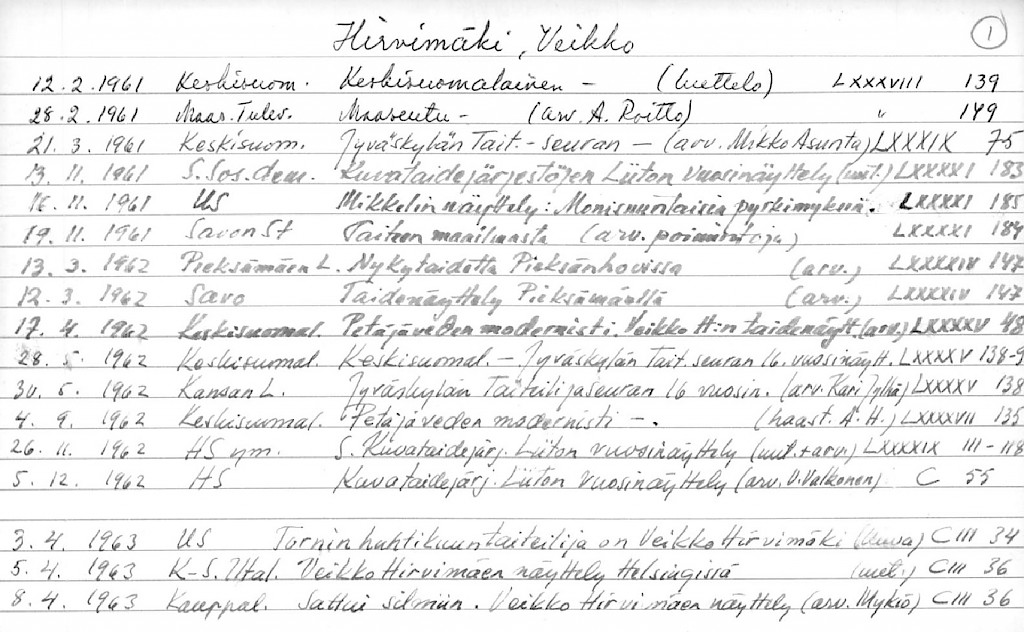 Hirvimäki, Veikko 1
12.2.1961 Keskisuom. Keskisuomalainen - (luettelo) LXXXVIII 139
28.2.1961 Maas.Tulev. Maaseutu - (arv. A. Roitto) " 149
21. 3. 1961 Keskisuom. Jyväskylän Tait.-seuran - (arv. Mikko Asunta) LXXXIX 75
13. 11. 1961 S.Sos.dem. Kuvataidejärjestöjen Liiton vuosinäyttely (uut.) LXXXXI 183
16. 11. 1961 US Mikkelin näyttely: Monisuuntaisia pyrkimyksiä. LXXXXI 185
19. 11. 1961 SavonSt Taiteen maailmasta (arv. poimintoja) LXXXXI 184
13. 3. 1962 Pieksämäen L. Nykytaidetta Pieksänhovissa (arv.) LXXXXIV 147
12. 3. 1962 Savo Taidenäyttely Pieksämäellä (arv.) LXXXXIV 147
17. 4. 1962 Keskisuomal. Petäjäveden modernisti. Veikko H:n taidenäytt. (arv.) LXXXXV 48
28. 5. 1962 Keskisuomal. Keskisuomal. - Jyväskylän Tait.seuran 16. vuosinäytt. LXXXXV 138-9
30. 5. 1962 Kansan L. Jyväskylän Taiteilijaseuran 16 vuosin. (arv. Kari Jylhä) LXXXXV 138
4. 9. 1962 Keskisuomal. Petäjäveden modernisti -. (haast. A.H.) LXXXXVII 135
26. 11. 1962 HS ym. S. Kuvataidejärj. Liiton vuosinäyttely (uut.+arv.) LXXXXIX 111-118
5. 12. 1962 HS Kuvataidejärj. Liiton vuosinäyttely (arv. V.Valkonen) C 55
3. 4. 1963 US Tornin huhtikuun taiteilija on Veikko Hirvimäki (kuva) CIII 34
5. 4. 1963 K-S.Iltal. Veikko Hirvimäen näyttely Helsingissä (uut.) CIII 36
8. 4. 1963 Kauppal. Sattui silmiin. Veikko Hirvimäen näyttely (arv. Mykiö) CIII 36